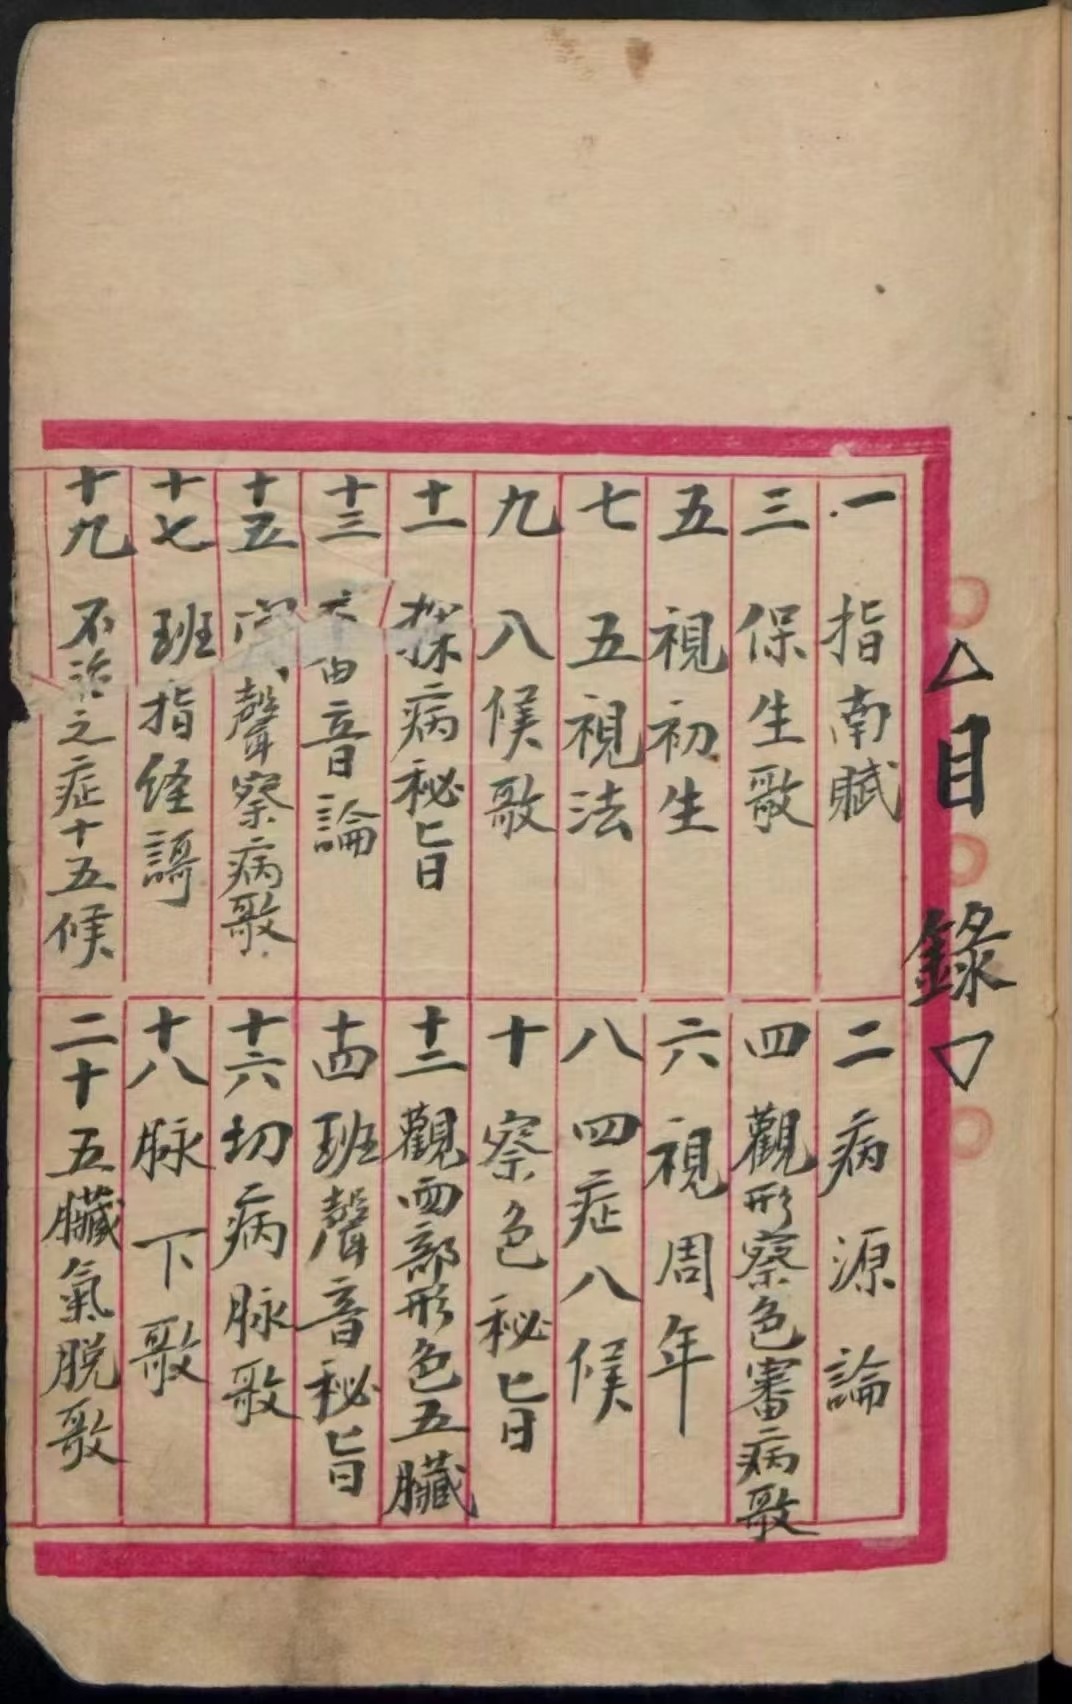 目錄
一 指南賦
二 病源論
三 保生歌
四 觀形察色審病歌
五 視初生
六 視周年
七 五視法
八 四症八候
九 八候歌
十 察色秘旨
十一 探病秘旨
十二 觀面部形色五臟
十三 音論
十四 班聲音秘旨
十五 聲察病歌
十六 切病脉歌
十七 班指经謌
十八 脉下歌
十九 不治之症十五候
二十 五臟氣脱歌